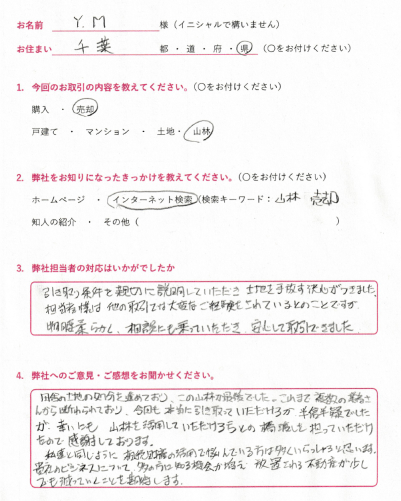 お名前 Y.M 様（イニシャルで構いません）
お住まい 千葉 都・道・府・県 （〇をお付けください）
1. 今回のお取引の内容を教えてください。（〇をお付けください）
購入 ・ 売却
戸建て ・ マンション ・ 土地・ 山林
2. 弊社をお知りになったきっかけを教えてください。（〇をお付けください）
ホームページ ・ インターネット検索（検索キーワード：山林 売却 ）
知人の紹介 ・ その他（ ）
3. 弊社担当者の対応はいかがでしたか
引き取り条件を親切に説明していただき 土地を手放す決心がつきました。
担当者様は他の取引では大変なご経験をされているとのことですが
物腰柔らかく、相談にも乗っていただき 安心して取引できました
4. 弊社へのご意見・ご感想をお聞かせください。
土地の処分を進めており、この山林が最後でした。これまで複数の業者さ
んから断られており、今回も本当に引き取っていただけるか半信半疑でした
が 幸いにも 山林を活用していただける方との橋渡しを担っていただけ
たので感謝しております。
私達と同じように 相続した の活用で悩んでいる方は多くいらっしゃると思います。
のビジネスについて、多くの方に知る機会が増え 放置される不動産が少し
でも減っていくことを期待します。